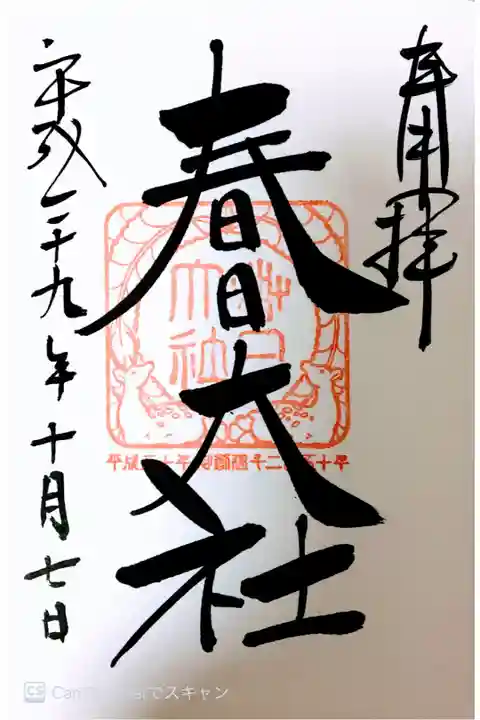 奉拝
春日大社
平成二十九年十月七日
春日
大社
平成三十年御創建千二百五十年
CS CamScannerでスキャン